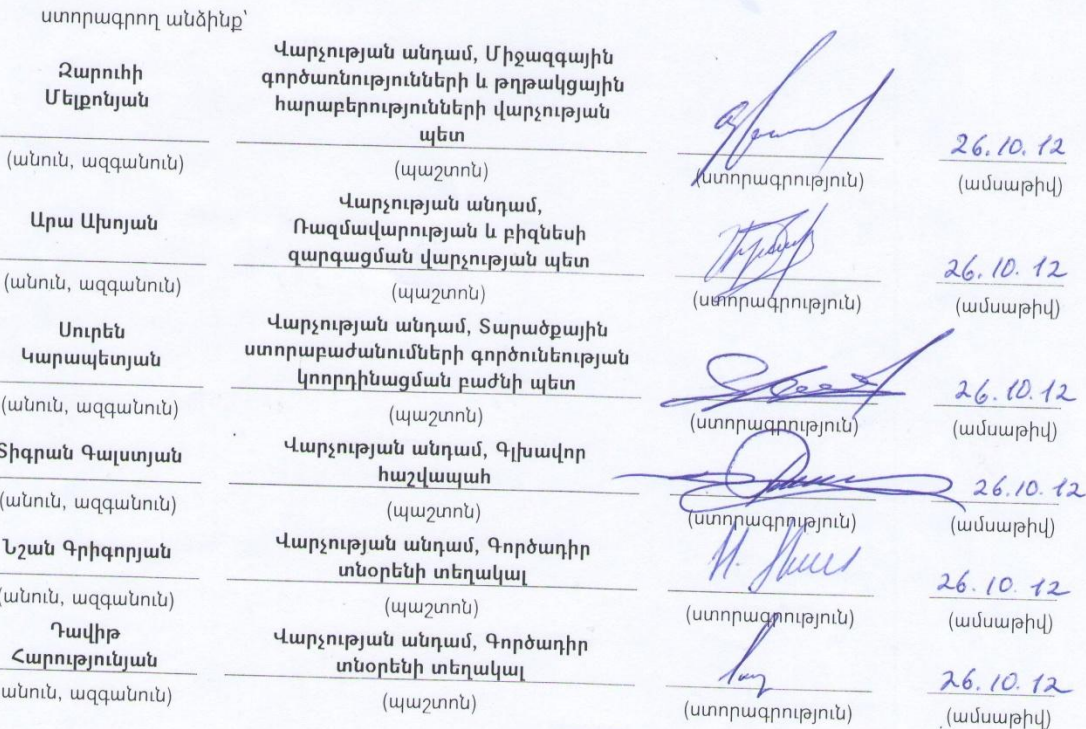 ստորագրող անձինք՝
Զարուհի
Մելքոնյան
Վարչության անդամ, Միջազգային
գործառնությունների և թղթակցային
հարաբերությունների վարչության
պետ
26.10.12
(անուն, ազգանուն)
(պաշտոն)
(ստորագրություն)
(ամսաթիվ)
Արա Ախոյան
Վարչության անդամ,
Ռազմավարության և բիզնեսի
զարգացման վարչության պետ
26.10.12
(անուն, ազգանուն)
(պաշտոն)
(ստորագրություն)
(ամսաթիվ)
Սուրեն
Կարապետյան
Վարչության անդամ, Տարածքային
ստորաբաժանումների գործունեության
կոորդինացման բաժնի պետ
26.10.12
(անուն, ազգանուն)
(պաշտոն)
(ստորագրություն)
(ամսաթիվ)
Տիգրան Գալստյան
Վարչության անդամ, Գլխավոր
հաշվապահ
26.10.12
(անուն, ազգանուն)
(պաշտոն)
(ստորագրություն)
(ամսաթիվ)
Նշան Գրիգորյան
Վարչության անդամ, Գործադիր
տնօրենի տեղակալ
26.10.12
(անուն, ազգանուն)
(պաշտոն)
(ստորագրություն)
(ամսաթիվ)
Դավիթ
Հարությունյան
Վարչության անդամ, Գործադիր
տնօրենի տեղակալ
26.10.12
անուն, ազգանուն)
(պաշտոն)
(ստորագրություն)
(ամսաթիվ)